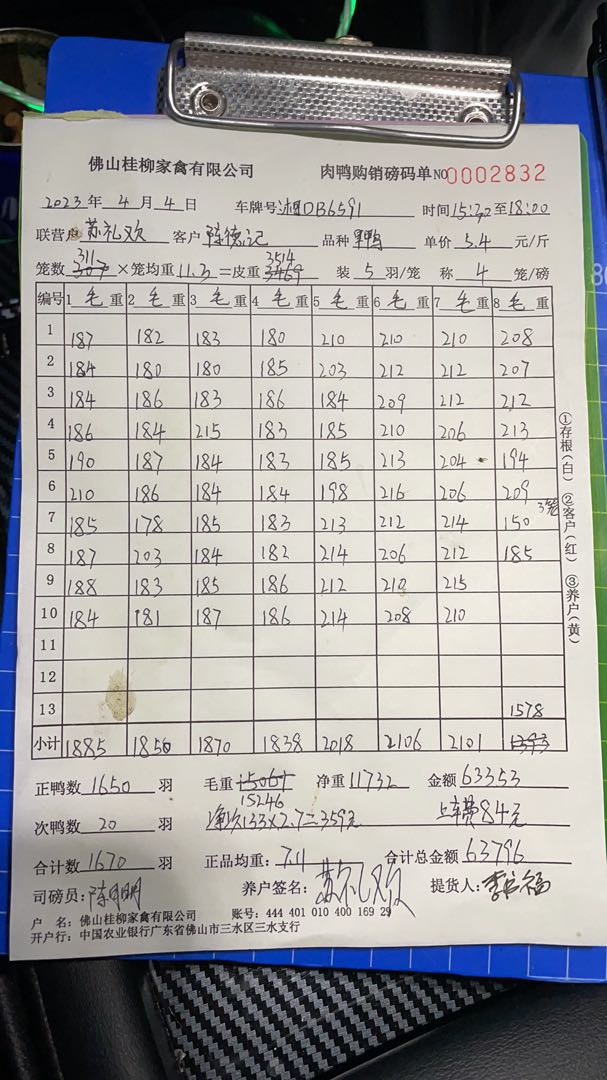 佛山桂柳家禽有限公司 肉鸭购销磅码单 NO 0002832
2023年 4月 4日 车牌号 湘DB6591 时间 15:32 至 18:00
联营户 苏礼欢 客户 陈德记 品种 单价 5.4 元/斤
311 3514
笼数 307 ×笼均重 11.3 =皮重 3469 装 5 羽/笼 称 4 笼/磅
编号 1 毛 重 2 毛 重 3 毛 重 4 毛 重 5 毛 重 6 毛 重 7 毛 重 8 毛 重
1 187 182 183 180 210 210 210 208
2 184 180 180 185 203 212 212 207
3 184 186 183 186 184 209 212 212
4 186 184 215 183 185 210 206 213
5 190 187 184 183 185 213 204 194
6 210 186 184 184 198 216 206 209
7 185 178 185 183 213 212 214 150 3笼
8 187 203 184 182 214 206 212 185
9 188 183 185 186 212 210 215
10 184 181 187 186 214 208 210
11
12
13 1578
小计 1885 1850 1870 1838 2018 2106 2101 1393
①存根(白) ②客户(红) ③养户(黄)
正鸭数 1650 羽 毛重 15061 净重 11732 金额 63353
15246
次鸭数 20 羽 净次133×2.7=359元 上车费84元
合计数 1670 羽 正品均重: 7.11 合计总金额 63796
司磅员: 养户签名: 苏礼欢 提货人:
户 名: 佛山桂柳家禽有限公司 账号: 444 401 010 400 169 29
开户行: 中国农业银行广东省佛山市三水区三水支行